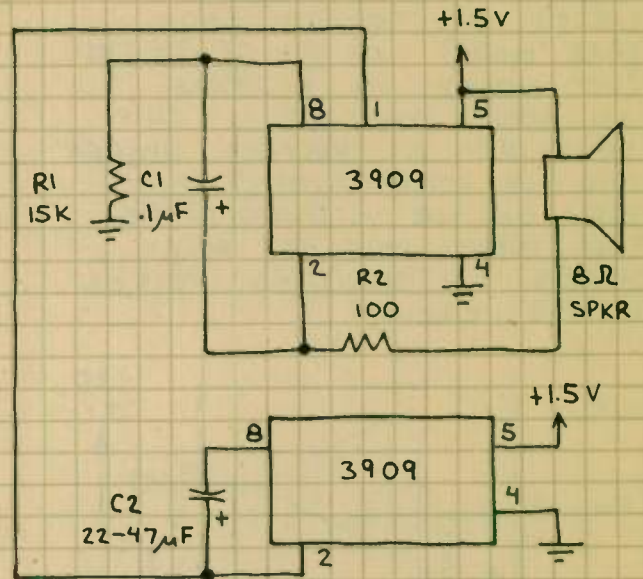 +1.5V
8 1 5
R1
15K
C1
.1µF
+
3909
2
4
R2
100
8Ω
SPKR
+1.5V
8
5
3909
4
C2
22-47µF
+
2